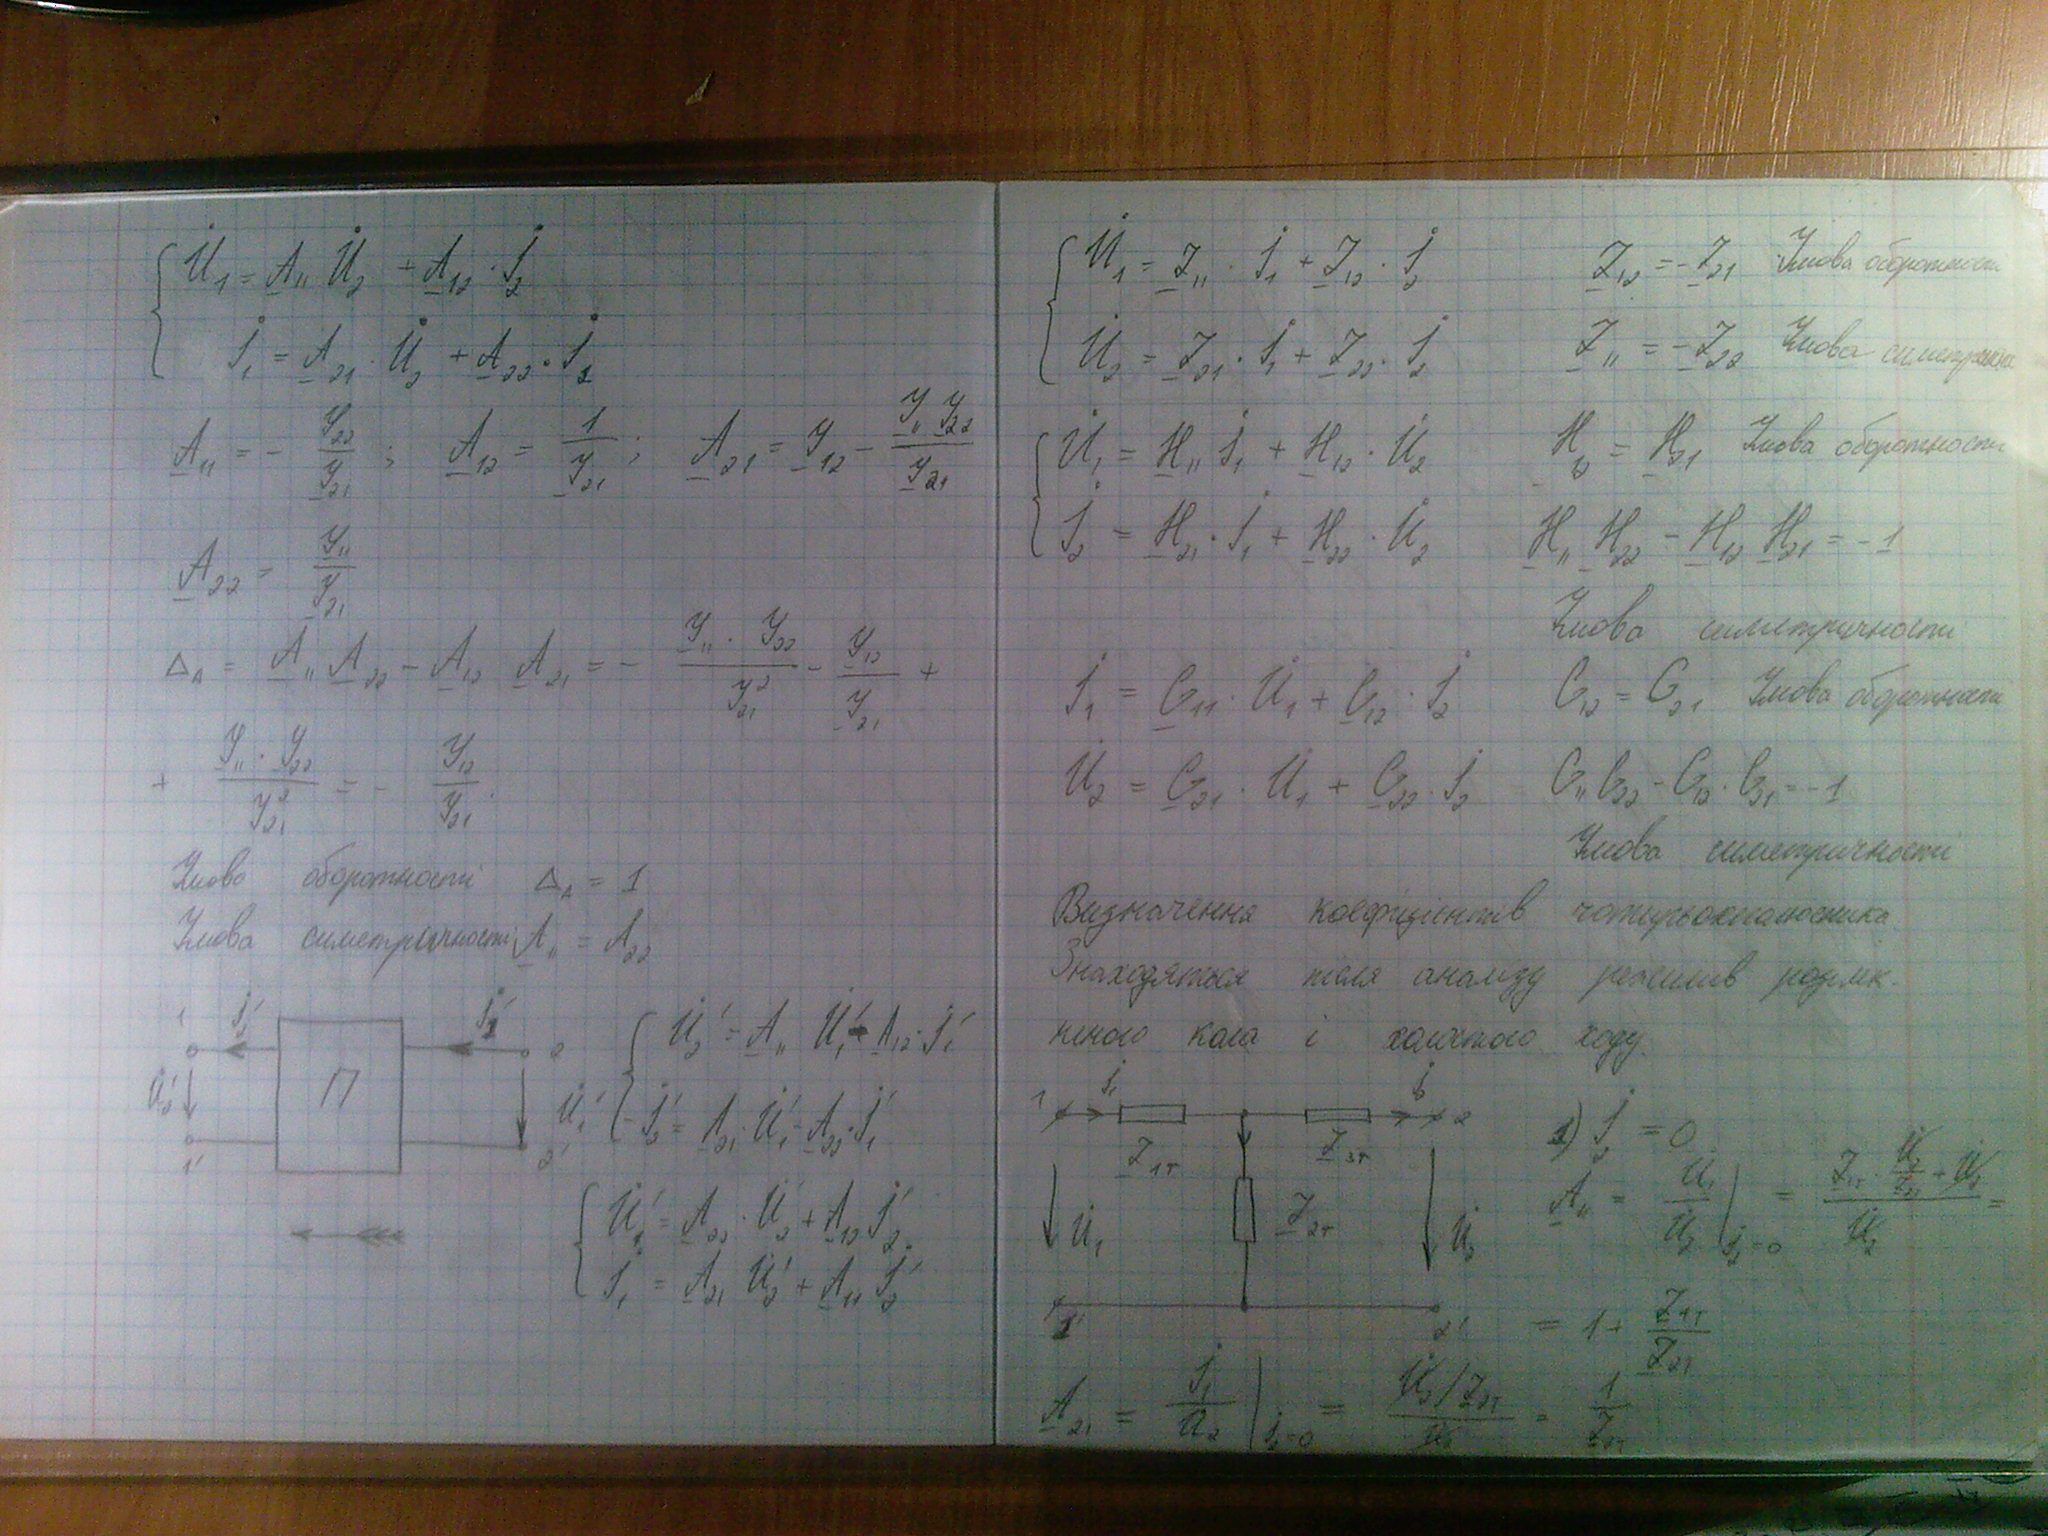 U̇₁ = A₁₁ U̇₂ + A₁₂ · İ₂
İ₁ = A₂₁ · U̇₂ + A₂₂ · İ₂
A₁₁ = - Y₂₂/Y₂₁ ; A₁₂ = 1/Y₂₁ ; A₂₁ = Y₁₂ - Y₁₁ Y₂₂/Y₂₁
A₂₂ = Y₁₁/Y₂₁
Δ_A = A₁₁ A₂₂ - A₁₂ A₂₁ = - Y₁₁ · Y₂₂/Y²₂₁ - Y₁₂/Y₂₁ +
+ Y₁₁ · Y₂₂/Y²₂₁ = - Y₁₂/Y₂₁.
Умова оборотності Δ_A = 1
Умова симетричності A₁₁ = A₂₂
1 İ₂' İ₁' 2
U̇₂' П U̇₁'
1' 2'
U̇₂' = A₁₁ U̇₁' - A₁₂ · İ₁'
- İ₂' = A₂₁ · U̇₁' - A₂₂ · İ₁'
U̇₁' = A₂₂ · U̇₂' + A₁₂ İ₂'
İ₁' = A₂₁ U̇₂' + A₁₁ İ₂'
U̇₁ = Z₁₁ · İ₁ + Z₁₂ · İ₂ Z₁₂ = - Z₂₁ Умова оборотності
U̇₂ = Z₂₁ · İ₁ + Z₂₂ · İ₂ Z₁₁ = - Z₂₂ Умова симетричн
U̇₁ = H₁₁ İ₁ + H₁₂ · U̇₂ H₁₂ = H₂₁ Умова оборотності
İ₂ = H₂₁ · İ₁ + H₂₂ · U̇₂ H₁₁ H₂₂ - H₁₂ H₂₁ = - 1
Умова симетричності
İ₁ = G₁₁ · U̇₁ + G₁₂ · İ₂ G₁₂ = G₂₁ Умова оборотності
U̇₂ = G₂₁ · U̇₁ + G₂₂ · İ₂ G₁₁ G₂₂ - G₁₂ · G₂₁ = - 1
Умова симетричності
Визначення коефіцієнтів чотирьохполюсника.
Знаходяться після аналізу режимів розімк-
неного кола і холостого ходу.
1 İ₁ İ₂ 2
Z₁т Z₃т
U̇₁ Z₂т U̇₂
1' 2'
1) İ₂ = 0
A₁₁ = U̇₁/U̇₂ |İ₂=0 = (Z₁т · U̇₂/Z₂т + U̇₂)/U̇₂ =
= 1 + Z₁т/Z₂т
A₂₁ = İ₁/U̇₂ |İ₂=0 = (U̇₂/Z₂т)/U̇₂ = 1/Z₂т